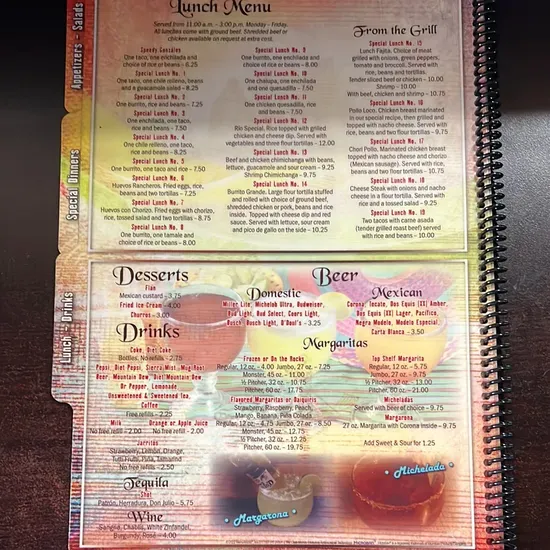 Appetizers - Salads
Special Dinners
Lunch - Drinks
Lunch Menu
Served from 11:00 a.m. - 3:00 p.m. Monday - Friday.
All lunches come with ground beef. Shredded beef or
chicken available on request at extra cost.
Speedy Gonzales
One taco, one enchilada and
choice of rice or beans - 6.25
Special Lunch No. 1
One taco, one chile relleno, beans
and a guacamole salad - 8.25
Special Lunch No. 2
One burrito, rice and beans - 7.25
Special Lunch No. 3
One enchilada, one taco,
rice and beans - 7.50
Special Lunch No. 4
One chile relleno, one taco,
rice and beans - 8.25
Special Lunch No. 5
One burrito, one taco and rice - 7.50
Special Lunch No. 6
Huevos Rancheros. Fried eggs, rice,
beans and two tortillas - 7.25
Special Lunch No. 7
Huevos con Chorizo. Fried eggs with chorizo,
rice, tossed salad and two tortillas - 8.75
Special Lunch No. 8
One burrito, one tamale and
choice of rice or beans - 8.00
Special Lunch No. 9
One burrito, one enchilada and
rice or beans - 8.00
Special Lunch No. 10
One chalupa, one enchilada
and one quesadilla - 7.50
Special Lunch No. 11
One chicken quesadilla, rice
and beans - 7.50
Special Lunch No. 12
Rio Special. Rice topped with grilled
chicken and cheese dip. Served with
vegetables and three flour tortillas - 12.00
Special Lunch No. 13
Beef and chicken chimichanga with beans,
lettuce, guacamole and sour cream - 9.25
Shrimp Chimichanga - 9.75
Special Lunch No. 14
Burrito Grande. Large flour tortilla stuffed
and rolled with choice of ground beef,
shredded chicken or pork, beans and rice
inside. Topped with cheese dip and red
sauce. Served with lettuce, sour cream
and pico de gallo on the side - 10.25
From the Grill
Special Lunch No. 15
Lunch Fajita. Choice of meat
grilled with onions, green peppers,
tomato and broccoli. Served with
rice, beans and tortillas.
Tender sliced beef or chicken - 10.00
Shrimp - 10.00
With beef, chicken and shrimp - 10.75
Special Lunch No. 16
Pollo Loco. Chicken breast marinated
in our special recipe, then grilled and
topped with nacho cheese. Served with
rice, beans and two flour tortillas - 9.75
Special Lunch No. 17
Chori Pollo. Marinated chicken breast
topped with nacho cheese and chorizo
(Mexican sausage). Served with rice,
beans and two flour tortillas - 10.00
Special Lunch No. 18
Cheese Steak with onions and nacho
cheese in a flour tortilla. Served with
rice and a tossed salad - 9.25
Special Lunch No. 19
Two tacos with carne asada
(tender grilled roast beef) served
with rice and beans - 10.00
Desserts
Flan
Mexican custard - 3.75
Fried Ice Cream - 4.00
Churros - 3.00
Drinks
Coke, Diet Coke
Bottles, No refills - 2.75
Pepsi, Diet Pepsi, Sierra Mist, Mug Root
Beer, Mountain Dew, Diet Mountain Dew
Dr Pepper, Lemonade
Unsweetened & Sweetened Tea,
Coffee
Free refills - 2.25
Milk
No free refill - 2.00
Orange or Apple Juice
No free refill - 2.00
Jarritos
Strawberry, Lemon, Orange,
Tutti Fruti, Piña, Tamarind
No free refills - 2.50
Tequila
Shot
Patrón, Herradura, Don Julio - 5.75
Wine
Sangria, Chablis, White Zinfandel,
Burgundy, Rosé - 4.00
Beer
Domestic
Miller Lite, Michelob Ultra, Budweiser,
Bud Light, Bud Select, Coors Light,
Busch, Busch Light, O'Doul's - 3.25
Mexican
Corona, Tecate, Dos Equis (XX) Amber,
Dos Equis (XX) Lager, Pacifico,
Negra Modelo, Modelo Especial,
Carta Blanca - 3.50
Margaritas
Frozen or On the Rocks
Regular, 12 oz. - 4.00 Jumbo, 27 oz. - 7.25
Monster, 45 oz. - 11.00
½ Pitcher, 32 oz. - 10.75
Pitcher, 60 oz. - 17.75
Flavored Margaritas or Daiquiris
Strawberry, Raspberry, Peach,
Mango, Banana, Piña Colada
Regular, 12 oz. - 4.75 Jumbo, 27 oz. - 8.50
Monster, 45 oz. - 12.75
½ Pitcher, 32 oz. - 12.25
Pitcher, 60 oz. - 19.75
Top Shelf Margarita
Regular, 12 oz. - 5.75
Jumbo, 27 oz. - 9.75
½ Pitcher, 32 oz. - 13.00
Pitcher, 60 oz. - 21.00
Micheladas
Served with beer of choice - 9.75
Margarona
27 oz. Margarita with Corona inside - 9.75
Add Sweet & Sour for 1.25
Margarona
Michelada